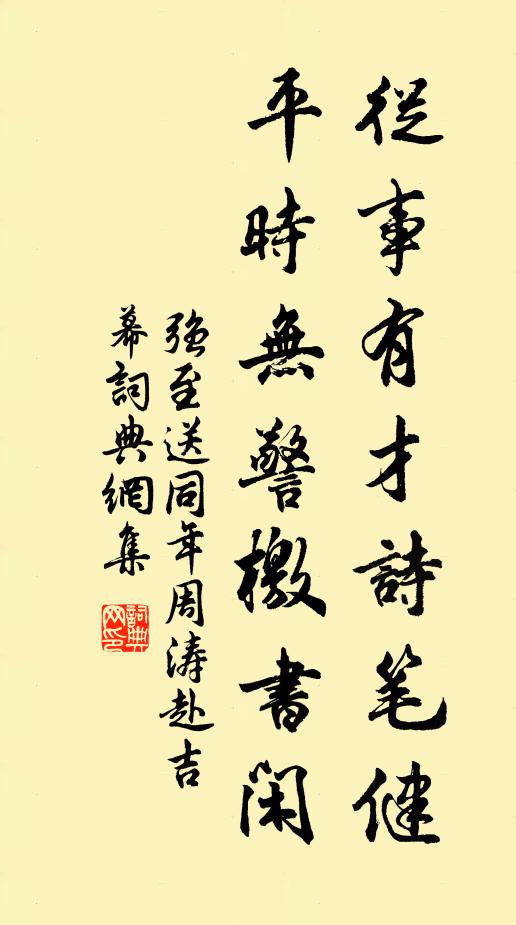 從事有才詩笔健
平時無警檄書閑
强至送同年周涛赴吉
幕詞典網集
詞典
网印